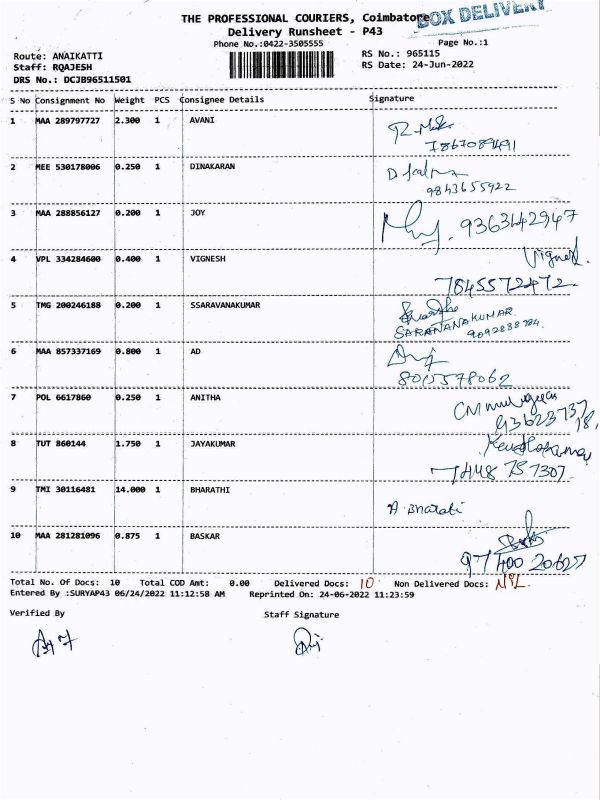 BOX DELIVERY
THE PROFESSIONAL COURIERS, Coimbatore
Delivery Runsheet - P43
Phone No.:0422-3505555
Page No.:1
Route: ANAIKATTI
RS No.: 965115
Staff: RQAJESH
RS Date: 24-Jun-2022
DRS No.: DCJB96511501
S No Consignment No Weight PCS Consignee Details Signature
1 MAA 289797727 2.300 1 AVANI
7867089491
2 MEE 530178006 0.250 1 DINAKARAN
9843655922
3 MAA 288856127 0.200 1 JOY
9363142947
4 VPL 334284600 0.400 1 VIGNESH
Vignesh.
7845572472.
5 TMG 200246188 0.200 1 SSARAVANAKUMAR
SARAVANAKUMAR.
9092838784.
6 MAA 857337169 0.800 1 AD
8015578062
7 POL 6617860 0.250 1 ANITHA
93623737
18,
8 TUT 860144 1.750 1 JAYAKUMAR
7448 757307.
9 TMI 30116481 14.000 1 BHARATHI
A Bharati
10 MAA 281281096 0.875 1 BASKAR
97400 20627
Total No. Of Docs: 10 Total COD Amt: 0.00 Delivered Docs: 10 Non Delivered Docs: NIL.
Entered By :SURYAP43 06/24/2022 11:12:58 AM Reprinted On: 24-06-2022 11:23:59
Verified By Staff Signature